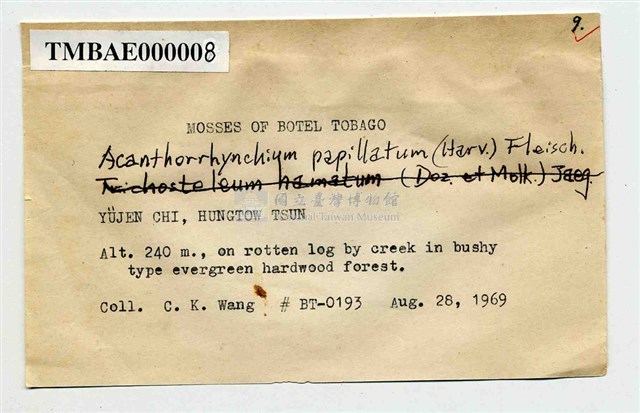 9.
TMBAE000008
MOSSES OF BOTEL TOBAGO
Acanthorrhynchium papillatum (Harv.) Fleisch.
Trichosteleum hamatum (Doz. et Molk.) Jaeg.
國立臺灣博物館
National Taiwan Museum
YÜJEN CHI, HUNGTOW TSUN
Alt. 240 m., on rotten log by creek in bushy
type evergreen hardwood forest.
Coll. C. K. Wang # BT-0193 Aug. 28, 1969